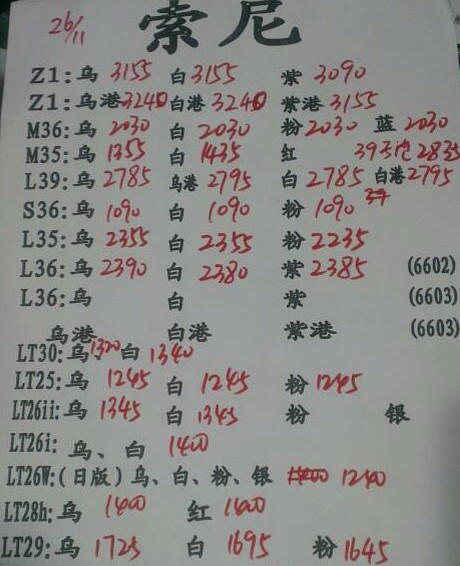 26/11
索尼
Z1:乌 3155 白 3155 紫 3090
Z1:乌港 3240 白港 3240 紫港 3155
M36:乌 2030 白 2030 粉 2030 蓝 2030
M35:乌 1355 白 1435 红 39 2835
L39:乌 2785 乌港 2795 白 2785 白港 2795
S36:乌 1090 白 1090 粉 1090
L35:乌 2355 白 2355 粉 2235
L36:乌 2390 白 2380 紫 2385 (6602)
L36:乌 白 紫 (6603)
乌港 白港 紫港 (6603)
LT30:乌 1320 白 1340
LT25:乌 1245 白 1245 粉 1245
LT26ii:乌 1345 白 1345 粉 银
LT26i:乌、白 1400
LT26W:(日版)乌、白、粉、银 1240
LT28h:乌 1400 红 1600
LT29:乌 1725 白 1695 粉 1645